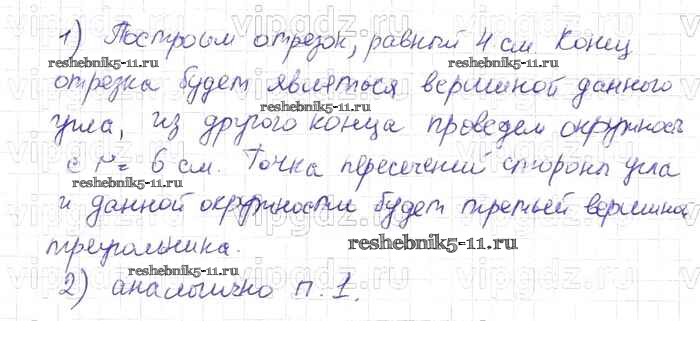 1) Построим отрезок, равный 4 см. Конец
reshebnik5-11.ru reshebnik5-11.ru
отрезка будет являться вершиной данного
reshebnik5-11.ru
угла, из другого конца проведем окружность
reshebnik5-11.ru reshebnik5-11.ru
с r = 6 см. Точка пересечений стороны угла
и данной окружности будет третьей вершиной
треугольника.
reshebnik5-11.ru
reshebnik5-11.ru
2) аналогично п. 1.
reshebnik5-11.ru